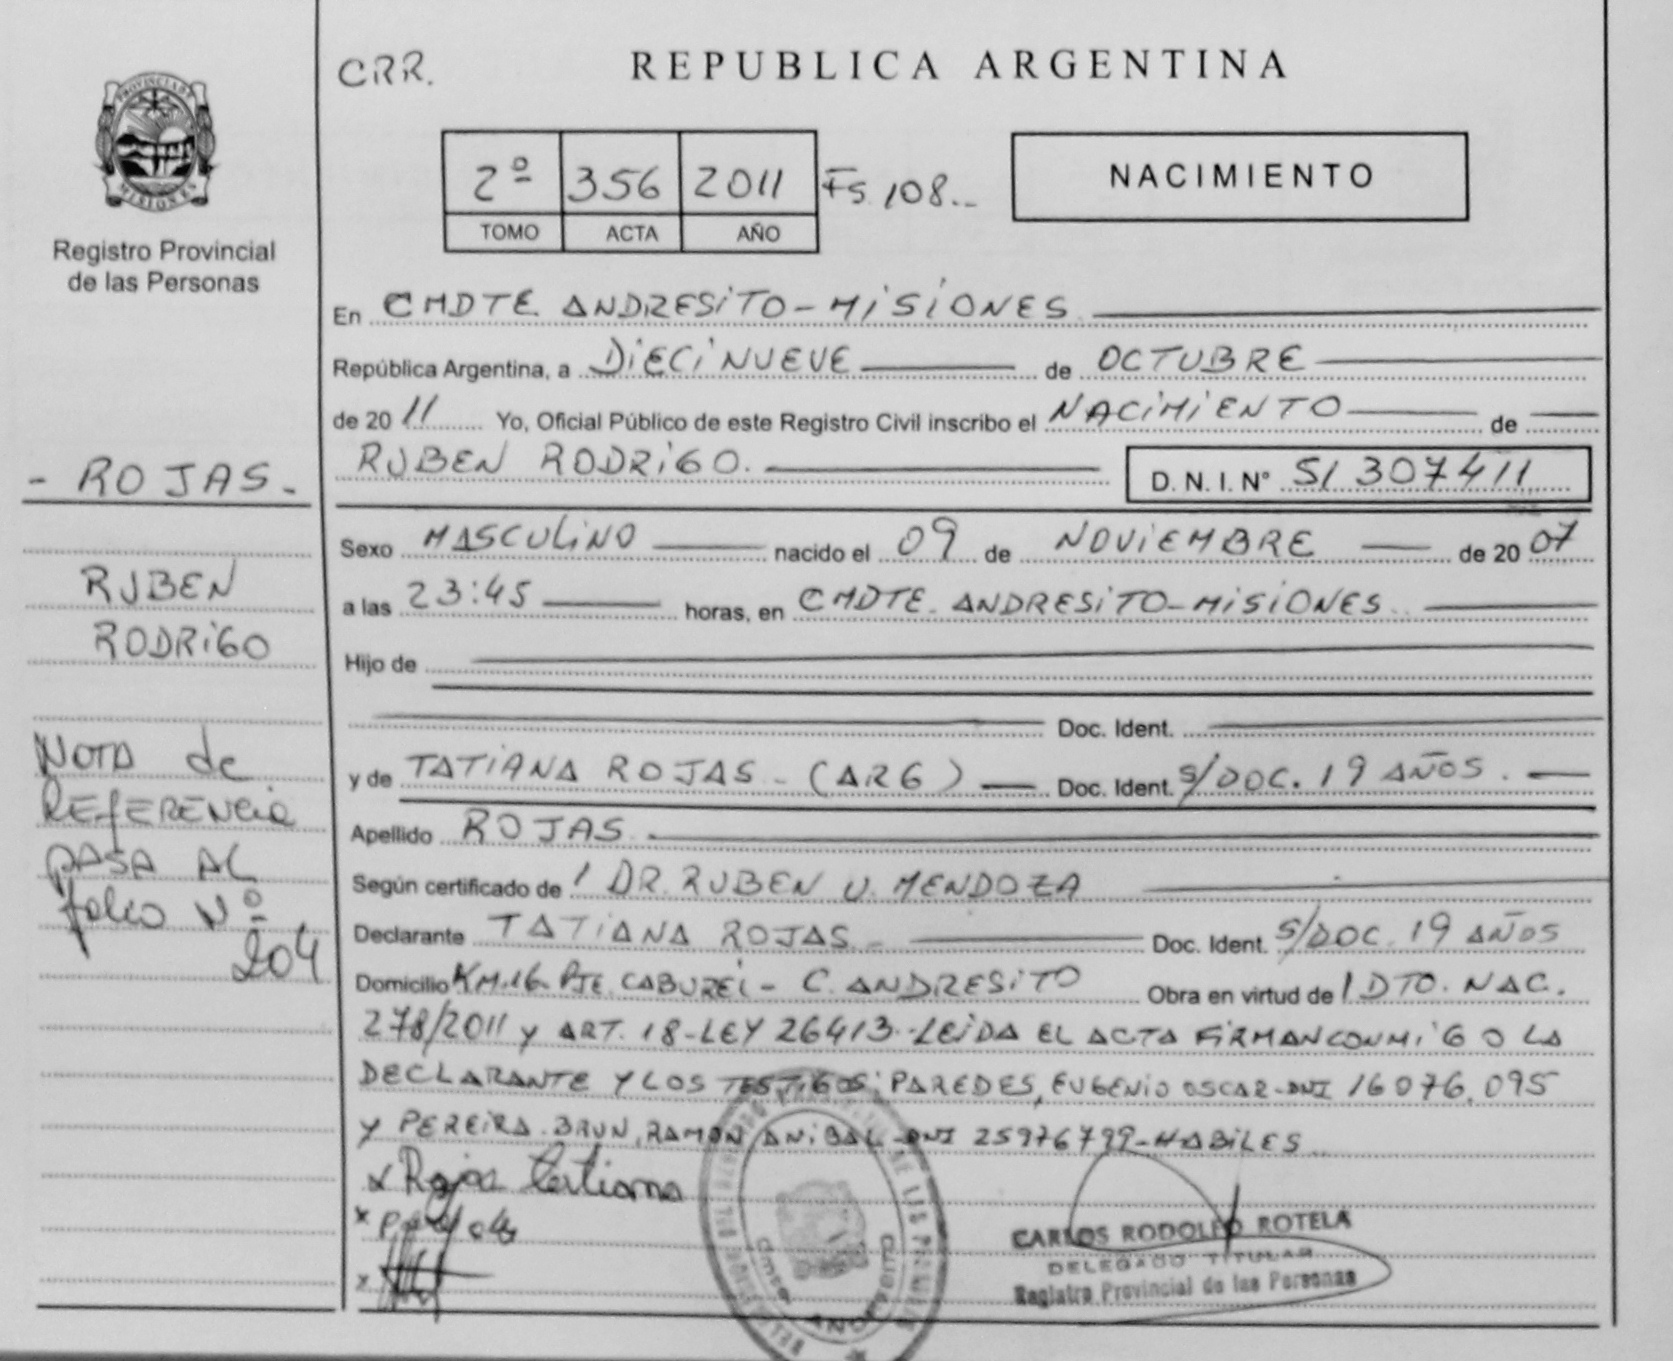 PROVINCIA DE
MISIONES
Registro Provincial
de las Personas
- ROJAS -
RUBEN
RODRIGO
NOTA de
REFERENCIA
PASA AL
folio Nº
204
CRR.
REPUBLICA ARGENTINA
2º 356 2011 Fs. 108..
TOMO ACTA AÑO
NACIMIENTO
En CMDTE ANDRESITO - MISIONES
República Argentina, a DIECINUEVE de OCTUBRE
de 20 11 Yo, Oficial Público de este Registro Civil inscribo el NACIMIENTO de
RUBEN RODRIGO. D. N. I. N° 51 307411
Sexo MASCULINO nacido el 09 de NOVIEMBRE de 20 07
a las 23:45 horas, en CMDTE. ANDRESITO - MISIONES
Hijo de
Doc. Ident.
y de TATIANA ROJAS - (ARG) Doc. Ident. S/DOC. 19 AÑOS.
Apellido ROJAS
Según certificado de / DR. RUBEN U. MENDOZA
Declarante TATIANA ROJAS Doc. Ident. S/DOC. 19 AÑOS
Domicilio KM.16 PJE. CABUREI - C. ANDRESITO Obra en virtud de / DTO. NAC.
278/2011 y ART. 18 - LEY 26413 - LEIDA EL ACTA FIRMAN CONMIGO LA
DECLARANTE Y LOS TESTIGOS: PAREDES, EUGENIO OSCAR - DNI 16076.095
y PEREIRA BRUN, RAMON ANIBAL - DNI 25976799 - HABILES
x Rojas Tatiana
x
x
CARLOS RODOLFO ROTELA
DELEGADO TITULAR
Registro Provincial de las Personas